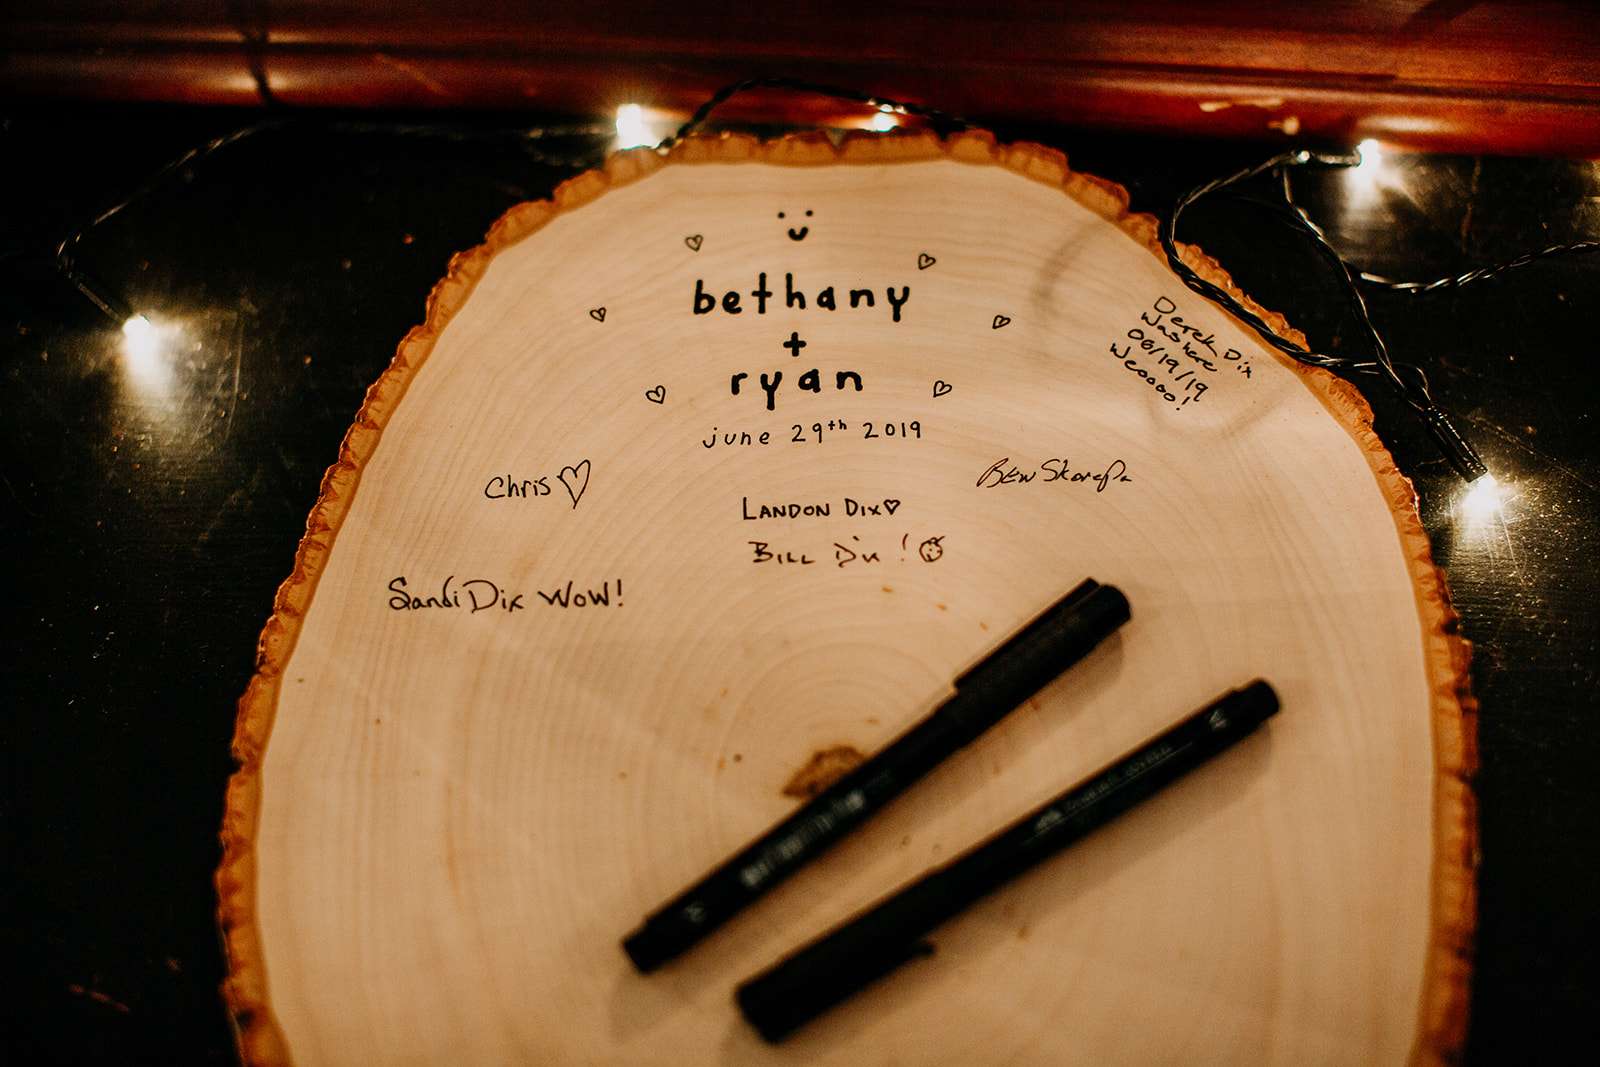 bethany
+
ryan
june 29th 2019
Derek Dix
was here
06/19/19
Weoooo!
Chris
Ben Skorepa
LANDON DIX
BILL Dix!
Sandi Dix WOW!